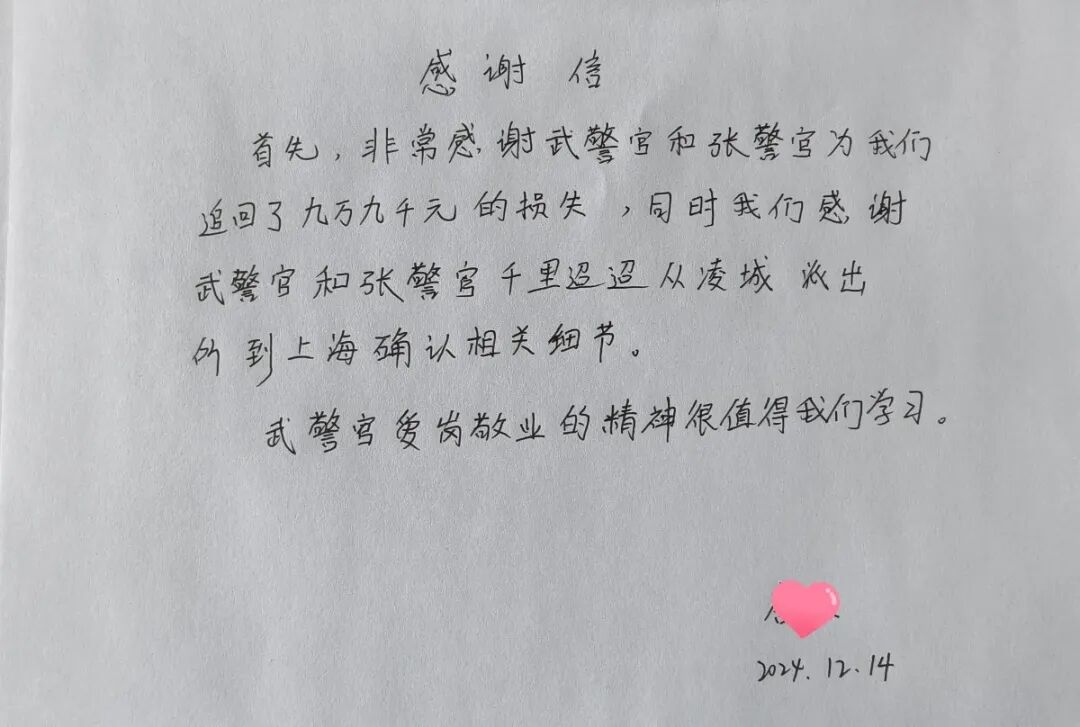 感谢信
首先，非常感谢武警官和张警官为我们
追回了九万九千元的损失，同时我们感谢
武警官和张警官千里迢迢从凌城派出
所到上海确认相关细节。
武警官爱岗敬业的精神很值得我们学习。
2024.12.14